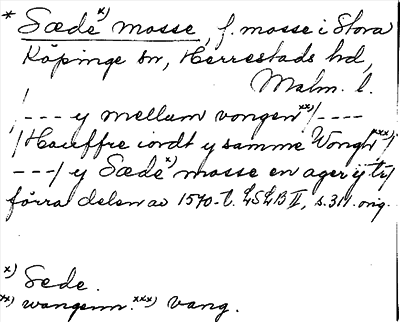 * Sæde x) mosse, f. mosse i Stora
Köpinge sn, Herrestads hd,
Malm. l.
/--- y mellum vongen xx)/----
/Hauffre iordt y samme Wongh xxx)/
---/ y Sæde x) mosse en ager ij
förra delen av 1570-t. LSLB II, s. 311. orig.
x) Sede.
xx) wangenn. xxx) vang.